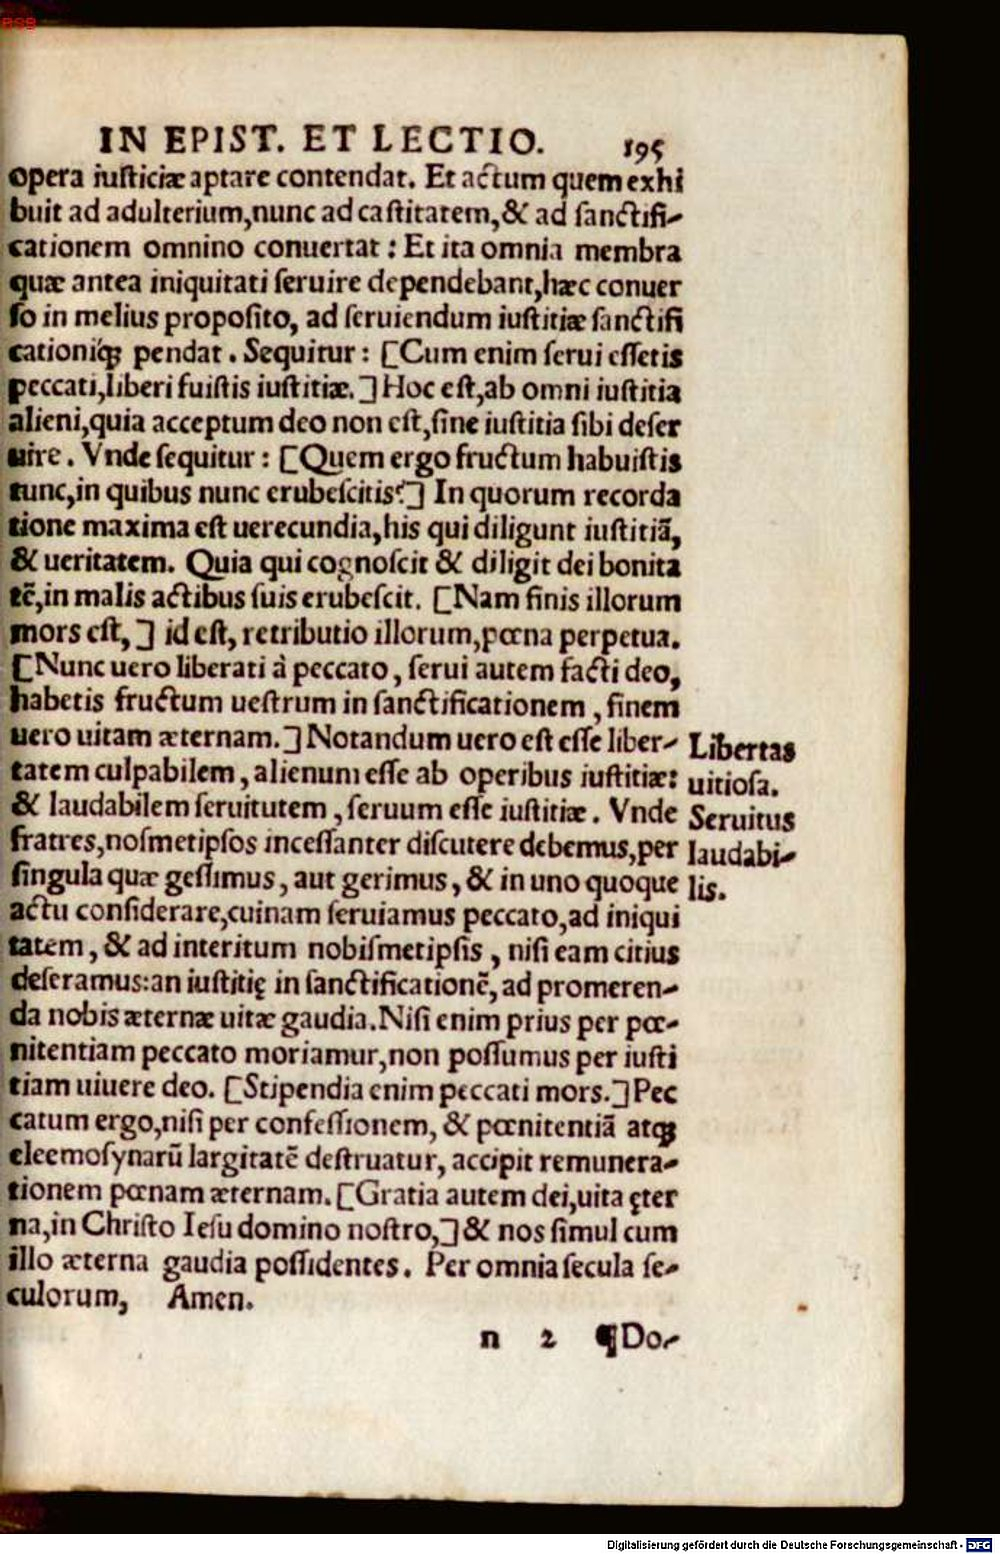 BSB
IN EPIST. ET LECTIO. 195
opera iuſticiæ aptare contendat. Et actum quem exhi
buit ad adulterium,nunc ad caſtitatem,& ad ſanctifi-
cationem omnino conuertat : Et ita omnia membra
quæ antea iniquitati ſeruire dependebant,hæc conuer
ſo in melius propoſito, ad ſeruiendum iuſtitiæ ſanctifi
cationiq́ꝫ pendat . Sequitur : [Cum enim ſerui eſſetis
peccati,liberi fuiſtis iuſtitiæ.] Hoc eſt,ab omni iuſtitia
alieni,quia acceptum deo non eſt,ſine iuſtitia ſibi deſer
uire . Vnde ſequitur : [Quem ergo fructum habuiſtis
tunc,in quibus nunc erubeſcitis?] In quorum recorda
tione maxima eſt uerecundia,his qui diligunt iuſtitiã,
& ueritatem. Quia qui cognoſcit & diligit dei bonita
tẽ,in malis actibus ſuis erubeſcit. [Nam finis illorum
mors eſt, ] id eſt, retributio illorum,pœna perpetua.
[Nunc uero liberati à peccato , ſerui autem facti deo,
habetis fructum ueſtrum in ſanctificationem , finem
uero uitam æternam.] Notandum uero eſt eſſe liber-
tatem culpabilem , alienum eſſe ab operibus iuſtitiæ:
& laudabilem ſeruitutem , ſeruum eſſe iuſtitiæ . Vnde
fratres,noſmetipſos inceſſanter diſcutere debemus,per
ſingula quæ geſſimus , aut gerimus , & in uno quoque
actu conſiderare,cuinam ſeruiamus peccato,ad iniqui
tatem , & ad interitum nobiſmetipſis , niſi eam citius
deſeramus:an iuſtitię in ſanctificationẽ, ad promeren-
da nobis æternæ uitæ gaudia.Niſi enim prius per pœ-
nitentiam peccato moriamur,non poſſumus per iuſti
tiam uiuere deo. [Stipendia enim peccati mors.] Pec
catum ergo,niſi per confeſſionem, & pœnitentiã atqꝫ
eleemoſynarũ largitatẽ deſtruatur, accipit remunera-
tionem pœnam æternam. [Gratia autem dei,uita ęter
na,in Chriſto Ieſu domino noſtro,] & nos ſimul cum
illo æterna gaudia poſſidentes . Per omnia ſecula ſe-
culorum, Amen.
n 2 ¶Do-
Libertas
uitioſa.
Seruitus
laudabi-
lis.
Digitalisierung gefördert durch die Deutsche Forschungsgemeinschaft - DFG